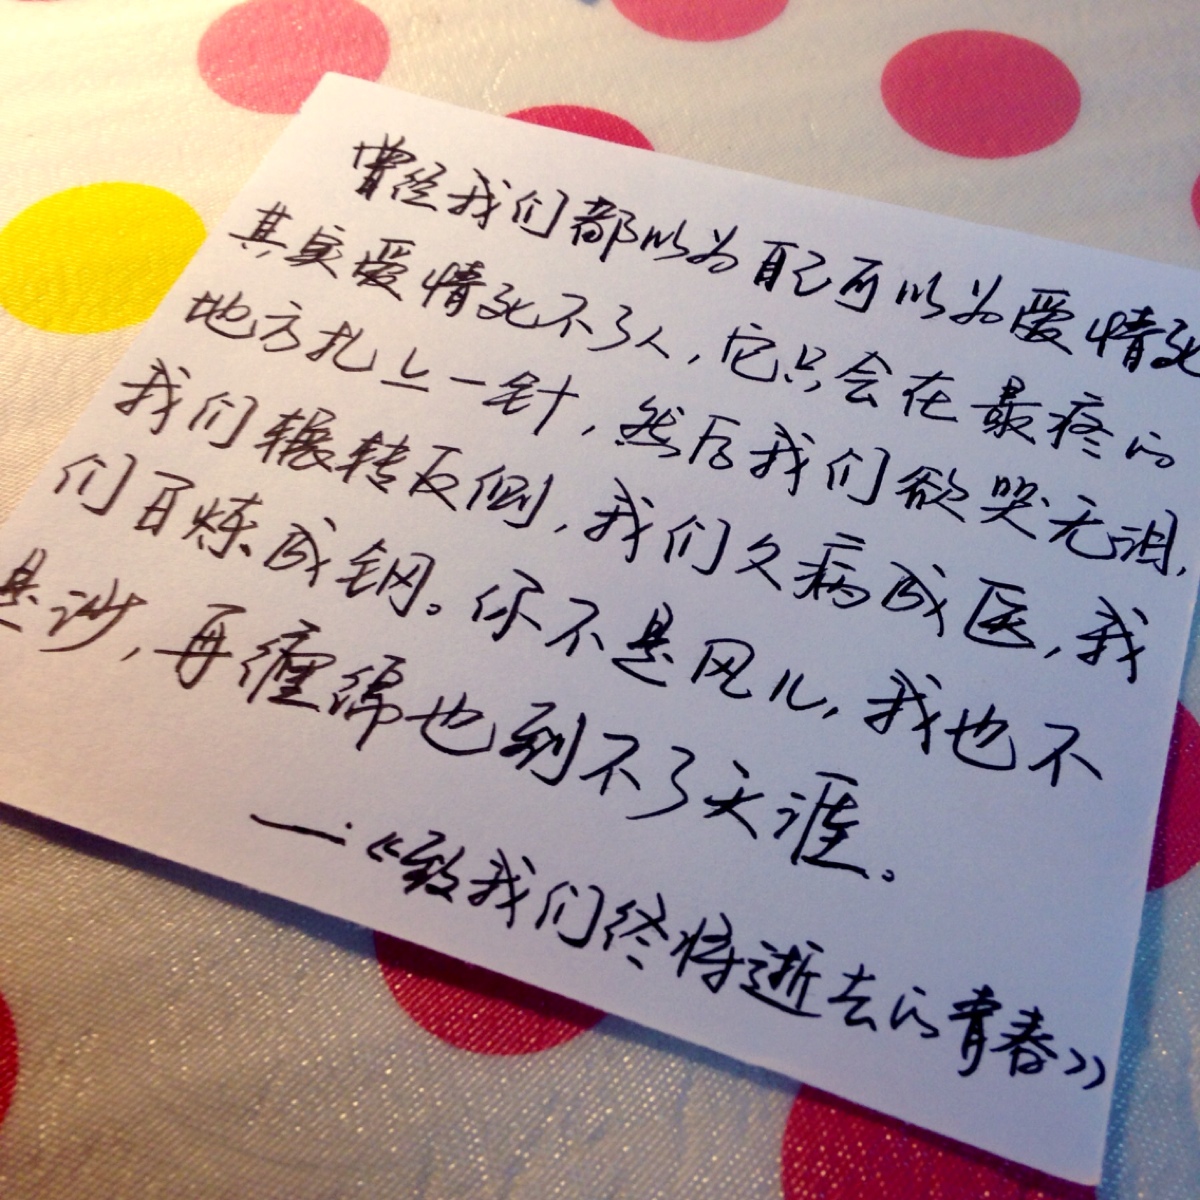 曾经我们都以为自己可以为爱情死
其实爱情死不了人，它只会在最疼的
地方扎上一针，然后我们欲哭无泪，
我们辗转反侧，我们久病成医，我
们百炼成钢。你不是风儿，我也不
是沙，再缠绵也到不了天涯。
——《致我们终将逝去的青春》